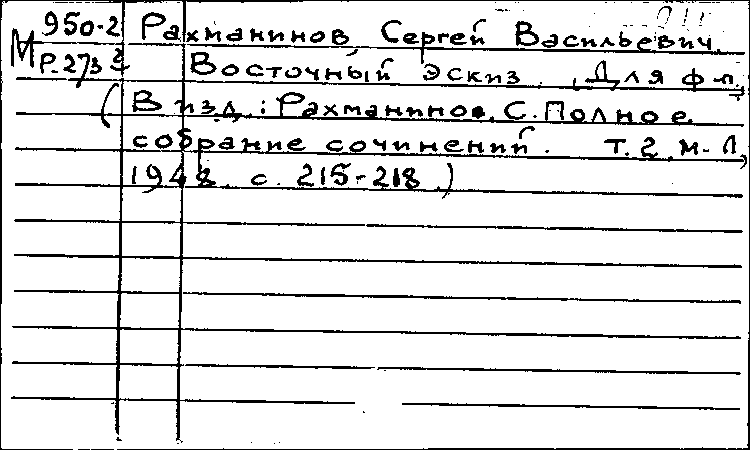 950-2 Рахманинов, Сергей Васильевич.
М Р-273 Восточный эскиз. (Для ф-п.)
(В изд.: Рахманинов, С. Полное
собрание сочинений. Т. 2. М.-Л,
1948. с. 215-218.)